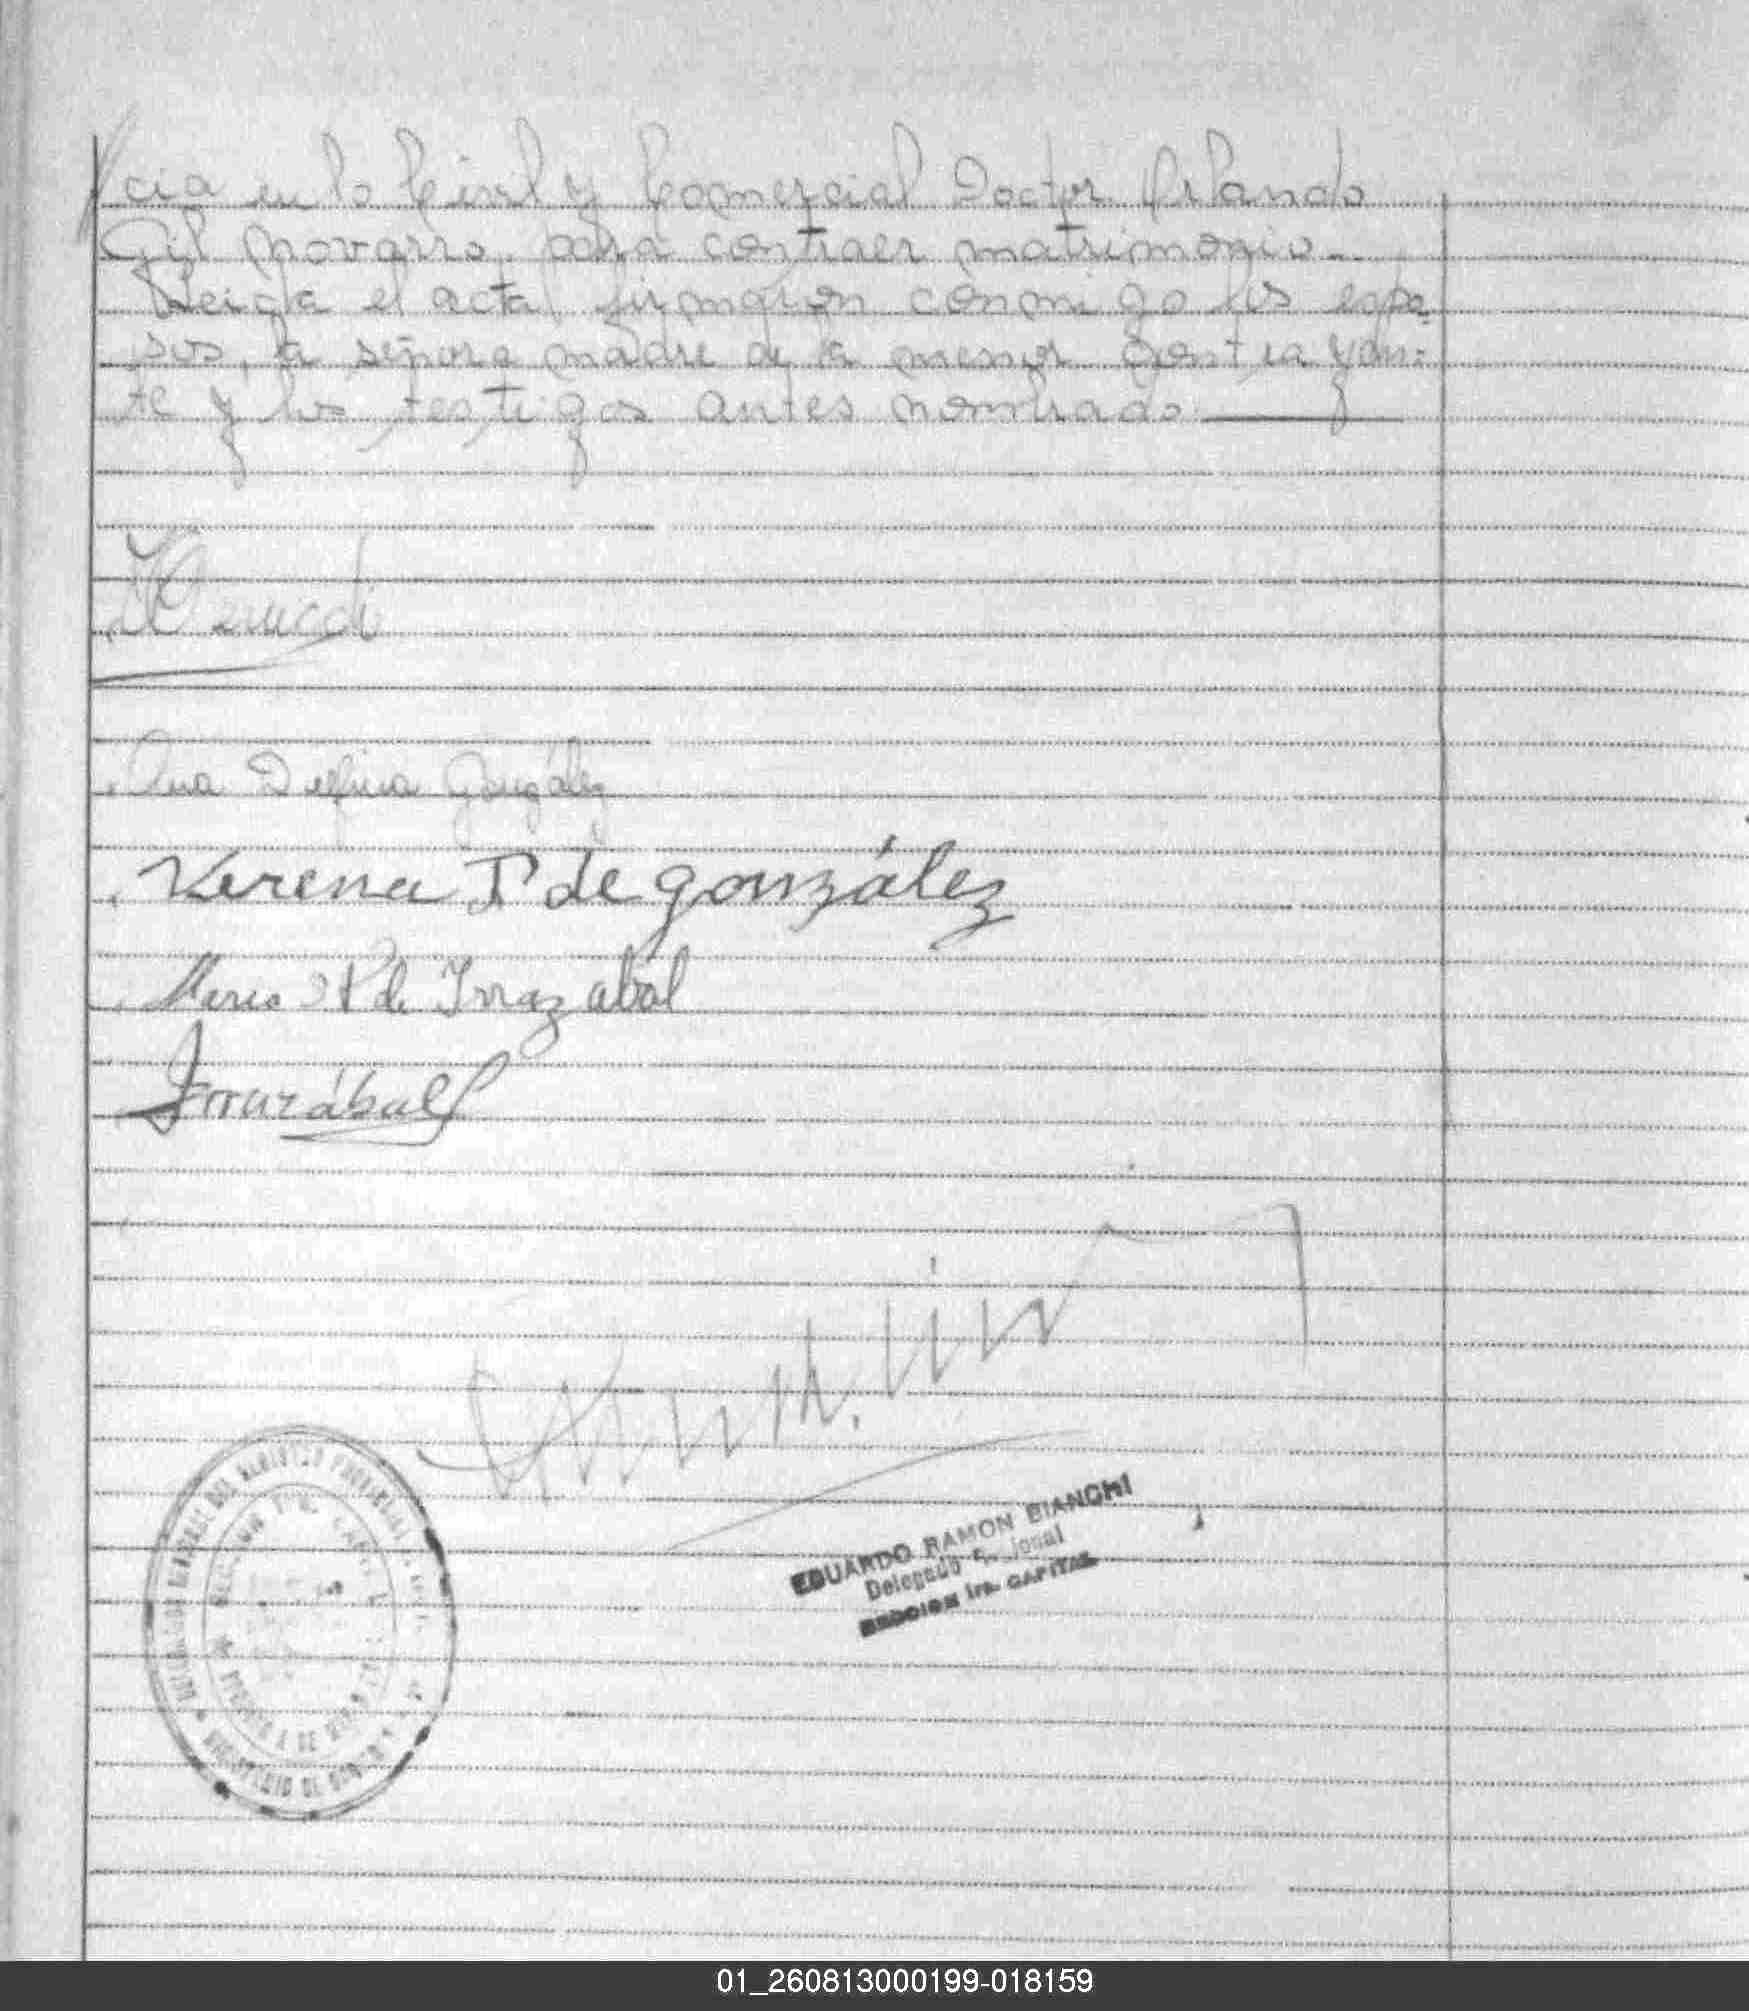 cia en lo Civil y Comercial Doctor Orlando
Gil Navarro, para contraer matrimonio.-
Leida el acta firmaron conmigo los espo-
sos, la señora madre de la menor contrayen-
te y los testigos antes nombrado
Ana Delfina González
Verena P de gonzález
María P de Irrazabal
Irrazábal
EDUARDO RAMON BIANCHI
Delegado
SECCION 1ra. CAPITAL
01_260813000199-018159